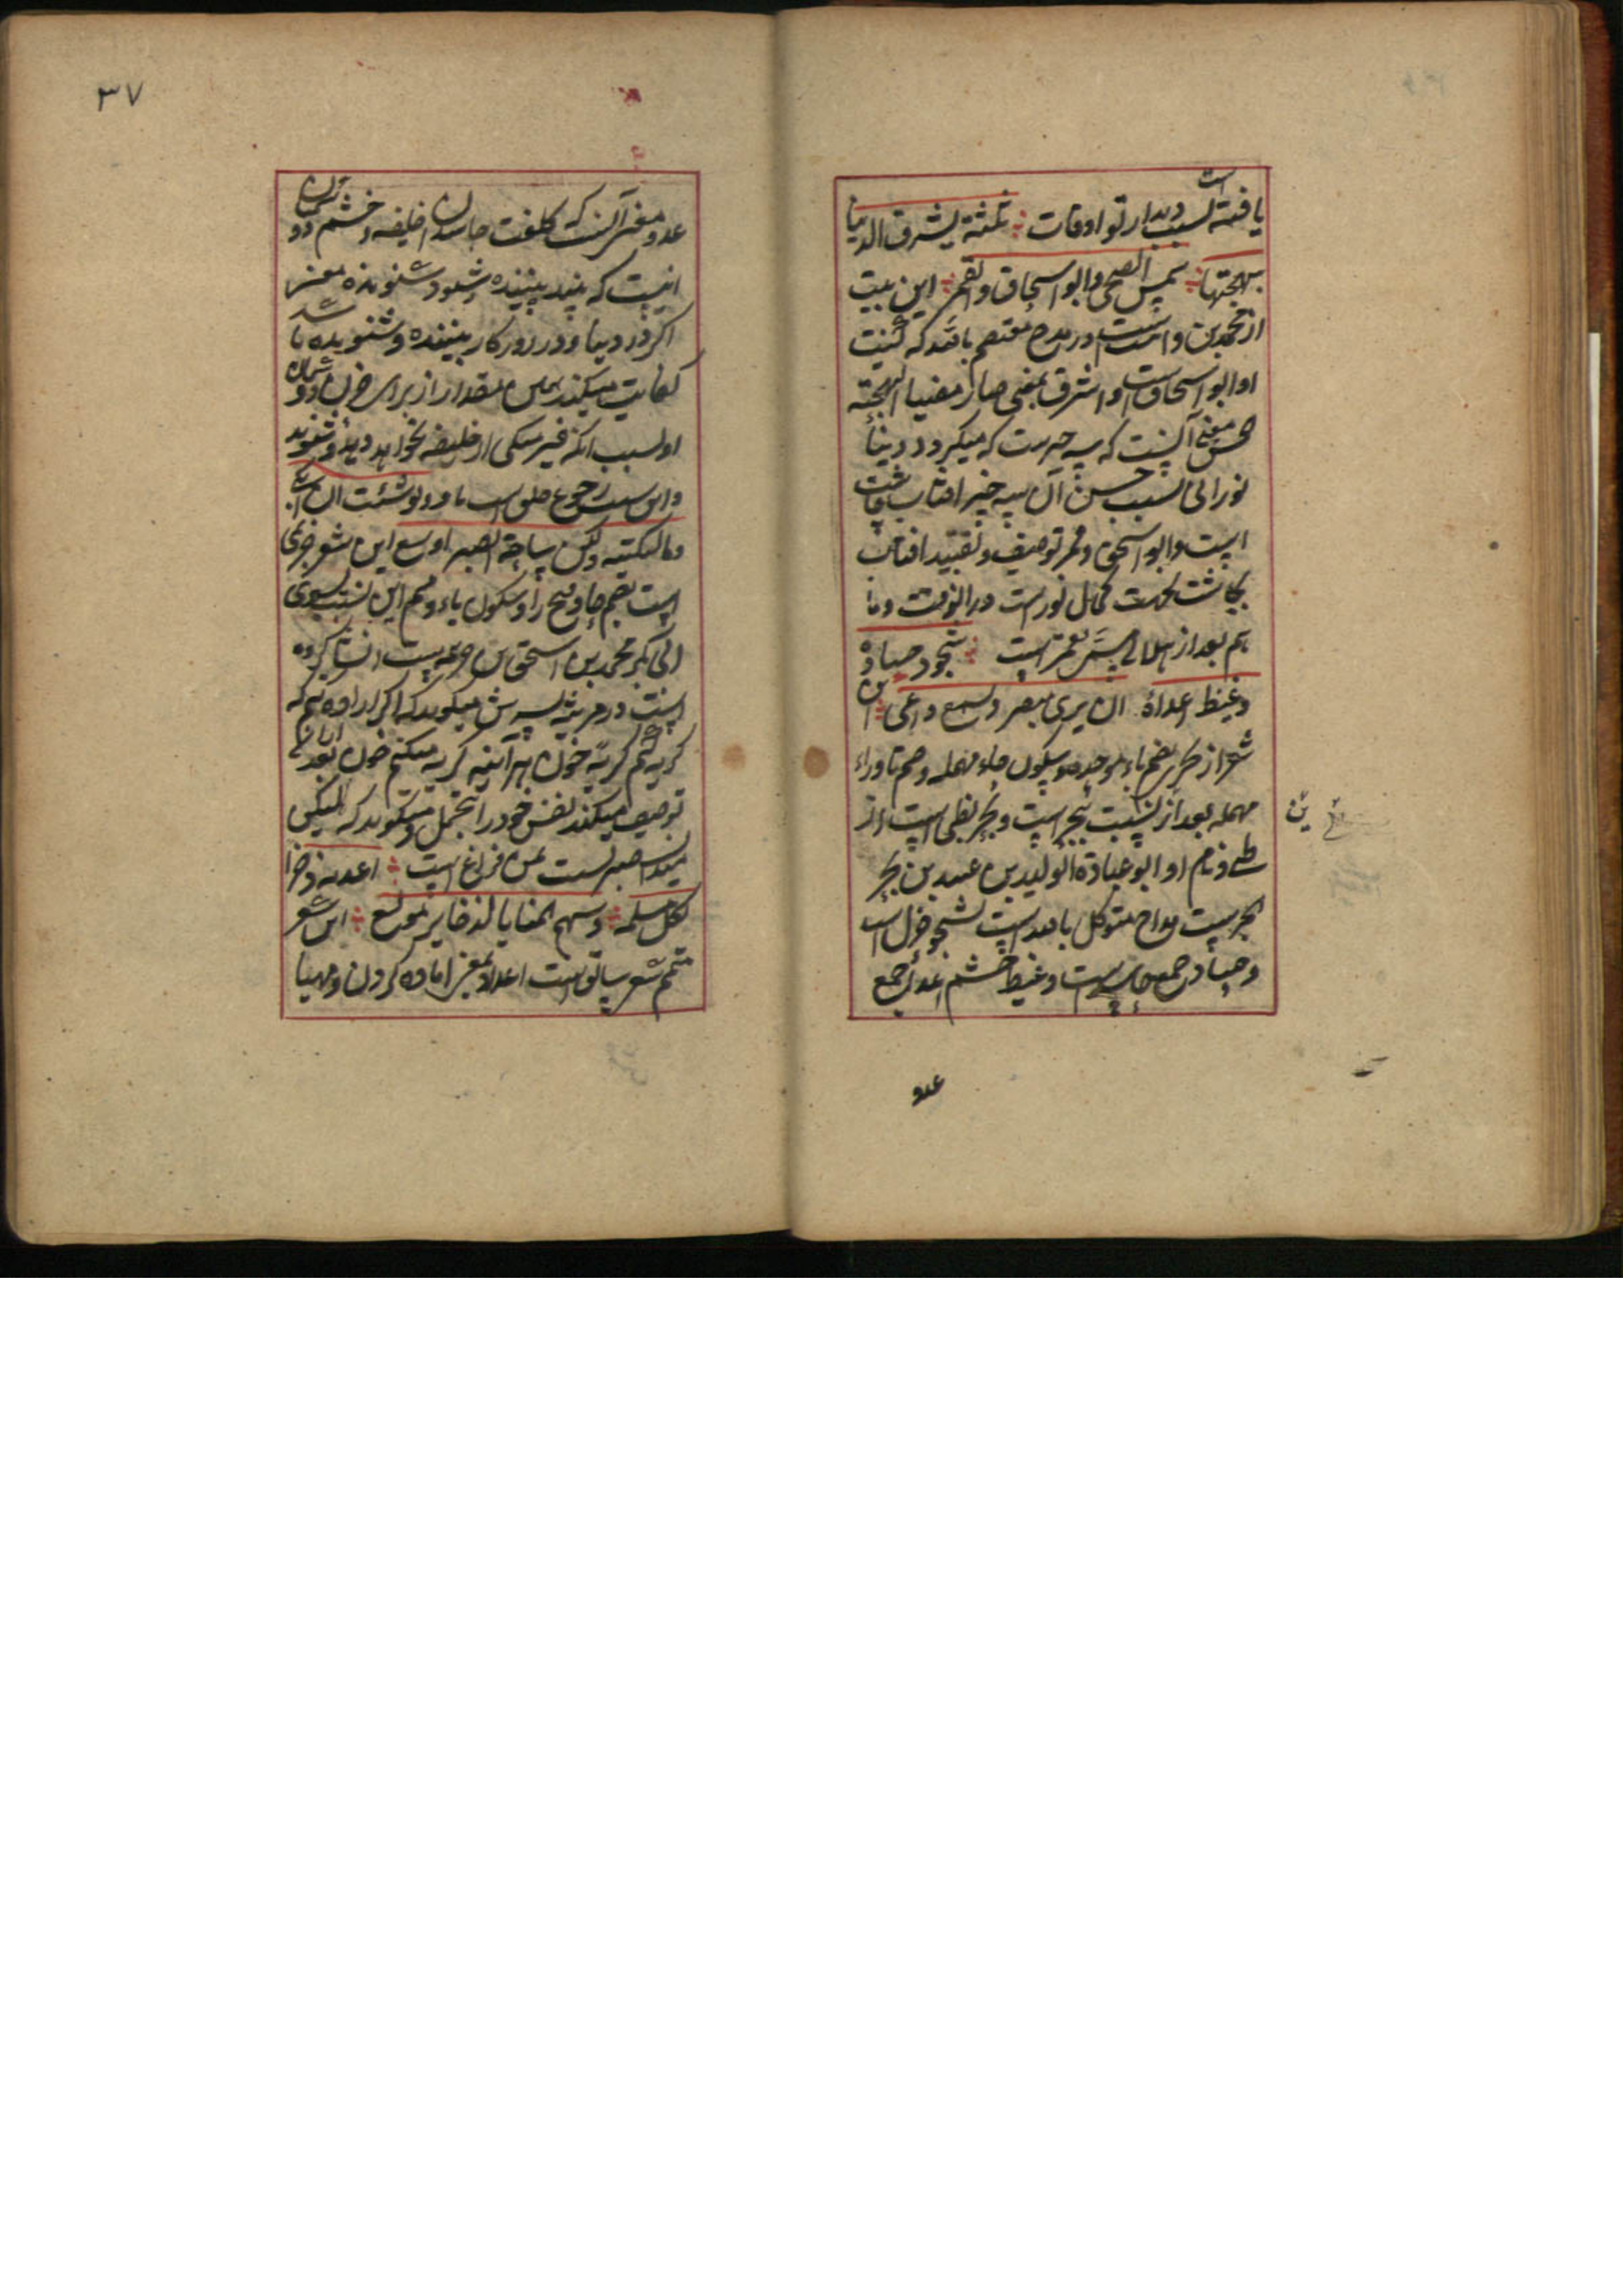 یافته است بسبب دیدار تو اوقات ؞ ثلثة یشرق الدنیا
ببهجتها ؞ شمس الضحی و ابو اسحاق و القمر ؞ این بیت
از محمد بن است در مدح معتصم بالله که کنیت
او ابو اسحاق است و اشرق بمعنی صار مضیئا البهجة
الحسن معنی آنست که سه چیز است که میکردد دنیا
نورانی بسبب حسن آن سه چیز افتاب چاشت
است و ابو اسحق و قمر توصیف و تقیید افتاب
بچاشت بجهت کمال نور است در آنوقت و ما
هم بعد از هلالی شهر قمر است ؞ شجو حساده
و غیظ اعداه ان یری مبصر و یسمع واعی ؞ این
شعر از بضم باء موحده و سکون حاء مهمله و ضم تا و راء
مهمله بعد از نسبت بحتر است و بحتر است از
طی و نام او ابو عبادة الولید بن عبید بن بحتر
بحتریست مداح متوکل بالله است شجو حزن است
و حساد جمع حاسد است و غیظ خشم اعدا جمع
عدو
۳۷
عدو و معنی آنست که کلفت حاسدان خلیفه و خشم
اینست که بیند بیننده و شنود شنونده معنی
اکر در دنیا و در روزکار بیننده و شنونده باشد
کفایت میکند همین مقدار از برای حزن دشمنان
او بسبب انکه غیر نیکی از خلیفه نخواهد دید و شنوید
و لو شئت ان ابکی دما
لبکیته و لکن ساحة الصبر اوسع این شعر خریمی
است بضم خا و فتح را و سکون یاء و میم این نسبت بسوی
ابی محمد بن اسحق بن خریمه است انشا کرده
است در مرثیه پسرش میکوید که اکر اراده کنم که
کریه کنم کریه خون هر آینه کریه میکنم خون بعد از آن
توصیف میکند نفس خود را بتحمل و میکوید که لیکن
میدان صبر است من فراغ است ؞ اعددته ذخرا
لکل ملمة ؞ و سهم المنایا بالذخایر مولع ؞ این شعر
متمم شعر سابق است اعداد بمعنی آماده کردن و مهیا